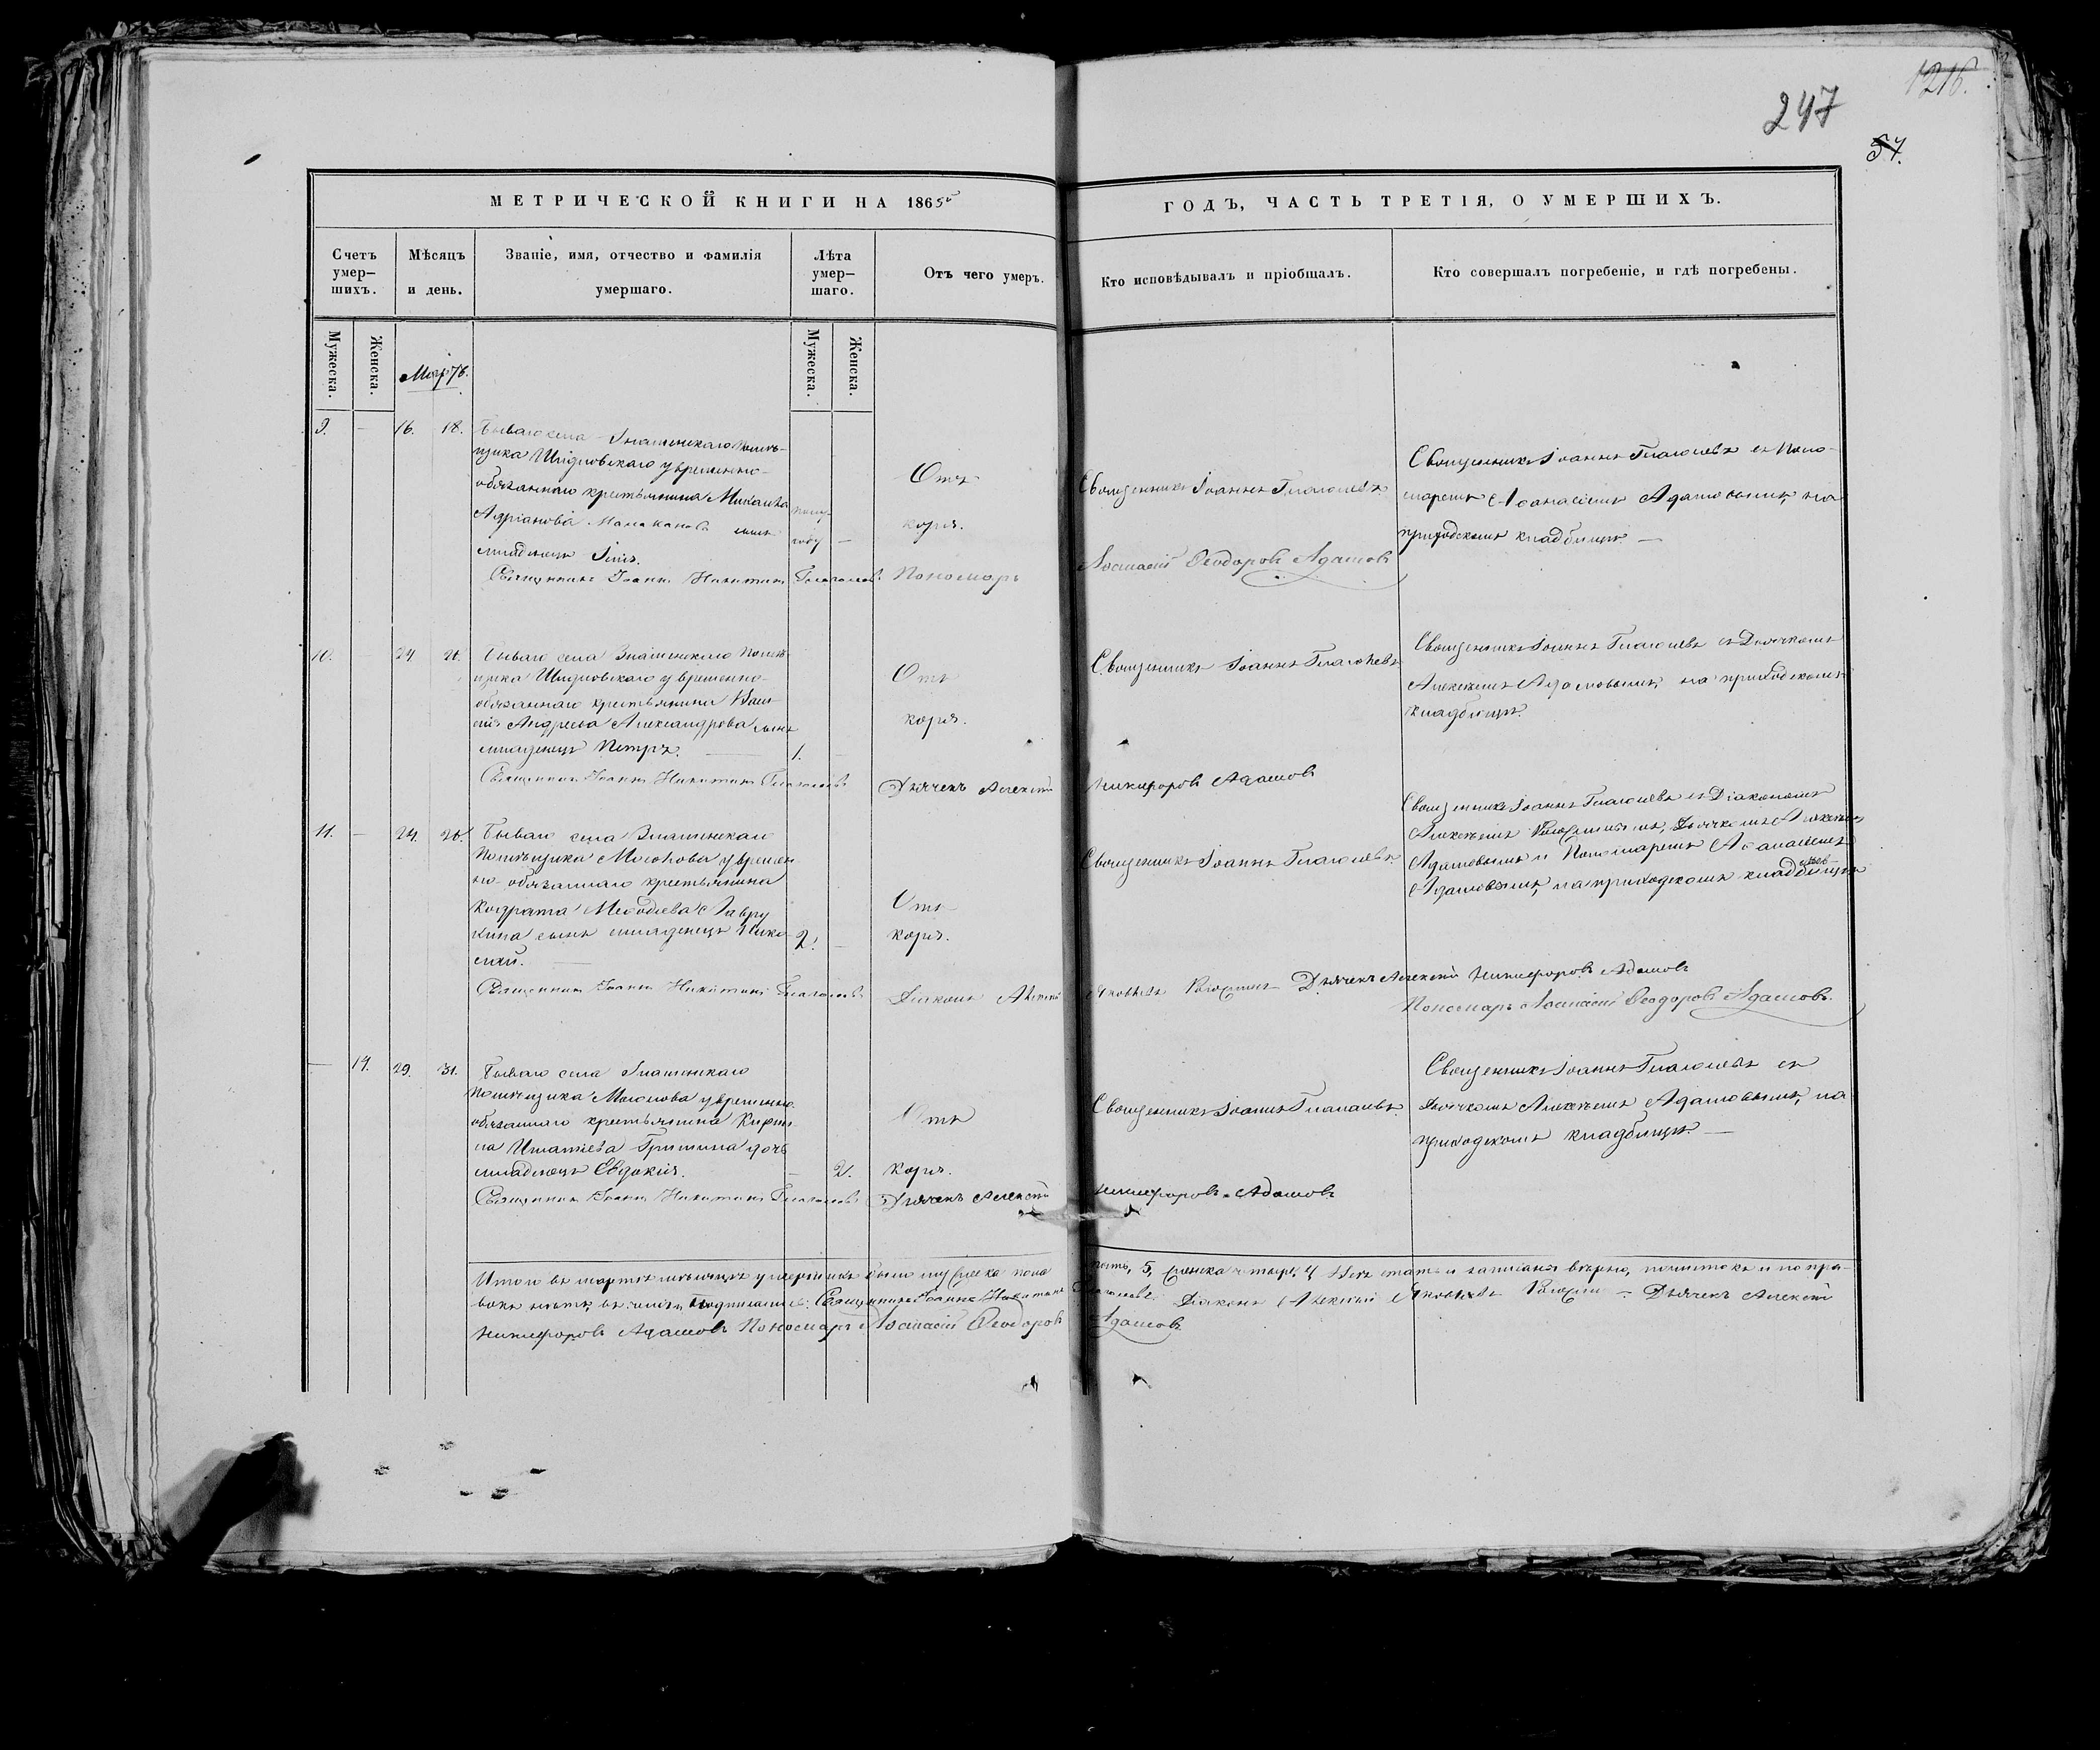 1216.
247
57.
МЕТРИЧЕСКОЙ КНИГИ НА 1865й
ГОДЪ, ЧАСТЬ ТРЕТІЯ, О УМЕРШИХЪ.
Счетъ умер—шихъ.
Мѣсяцъ и день.
Званіе, имя, отчество и фамилія умершаго.
Лѣта умер—шаго.
Отъ чего умеръ.
Кто исповѣдывалъ и пріобщалъ.
Кто совершалъ погребеніе, и гдѣ погребены.
Мужеска.
Женска.
Мужеска.
Женска.
Мартъ.
9. — 16. 18.
Бывшаго села Знаменскаго помѣ-
щика Шидловскаго у временно-
обязаннаго крестьянина Михаила
Адріанова сынъ
младенецъ
году —
Отъ
коря.
Священникъ Іоаннъ Глаголевъ
Священникъ Іоаннъ Глаголевъ съ Поно-
маремъ Аѳанасіемъ Адамовымъ, на
приходскомъ кладбищѣ. —
Священникъ Іоаннъ Никитинъ Глаголевъ Пономарь Аѳанасій Ѳеодоровъ Адамовъ
10. 24 26.
Бывшаго села Знаменскаго помѣ-
щика Шидловскаго у временно-
обязаннаго крестьянина Васи-
лія Андреева Александрова сынъ
младенецъ Петръ. — 1. —
Отъ
коря.
Священникъ Іоаннъ Глаголевъ
Священникъ Іоаннъ Глаголевъ съ Дьячкомъ
Алексѣемъ Адамовымъ, на приходскомъ
кладбищѣ.
Священникъ Іоаннъ Никитинъ Глаголевъ Дьячекъ Алексѣй Никифоровъ Адамовъ
11. — 24. 26.
Бывшаго села Знаменскаго
Помѣщика у времен-
но-обязаннаго крестьянина
Кодрата Меѳодіева Лавру
кина сынъ младенецъ Нико-
лай. — 2. —
Отъ
коря.
Священникъ Іоаннъ Глаголевъ
Священникъ Іоаннъ Глаголевъ съ Діакономъ
Алексѣемъ Дьячкомъ Алексѣемъ
Адамовымъ и Пономаремъ Аѳанасіемъ
Адамовымъ, на приходскомъ кладбищѣ
Священникъ Іоаннъ Никитинъ Глаголевъ Діаконъ Алексѣй Яковлевъ Дьячекъ Алексѣй Никифоровъ Адамовъ
Пономарь Аѳанасій Ѳеодоровъ Адамовъ.
— 14. 29. 31.
Бывшаго села Знаменскаго
Помѣщика у временно
обязаннаго крестьянина Кирил-
ла Игнатіева Гришина дочь
младенецъ Евдокія. — 2.
Отъ
коря.
Священникъ Іоаннъ Глаголевъ
Священникъ Іоаннъ Глаголевъ съ
Дьячкомъ Алексѣемъ Адамовымъ, на
приходскомъ кладбищѣ. —
Священникъ Іоаннъ Никитинъ Глаголевъ Дьячекъ Алексѣй Никифоровъ Адамовъ
Итого въ мартѣ мѣсяцѣ умершихъ было мужеска пола пять, 5, женска четыре, 4 статьи записаны вѣрно, почистокъ и попра-
вокъ нѣтъ, въ чемъ и подписались: Священникъ Іоаннъ Никитинъ Глаголевъ Діаконъ Алексѣй Яковлевъ Дьячекъ Алексѣй
Никифоровъ Адамовъ Пономарь Аѳанасій Ѳеодоровъ Адамовъ